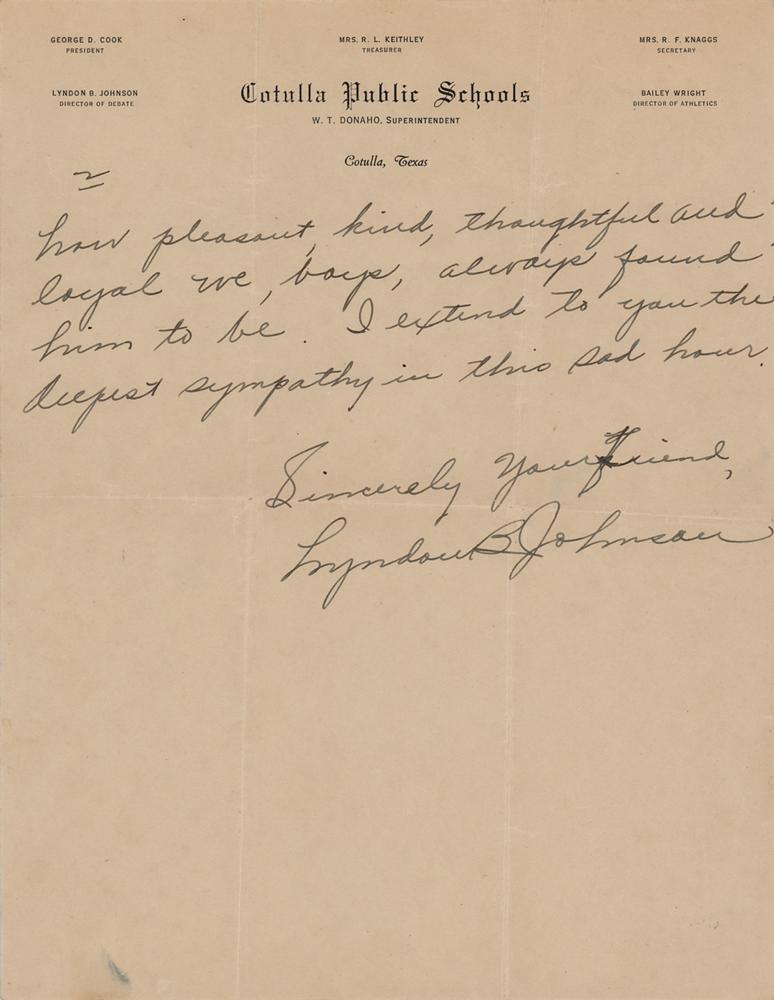 GEORGE D. COOK
PRESIDENT
MRS. R. L. KEITHLEY
TREASURER
MRS. R. F. KNAGGS
SECRETARY
LYNDON B. JOHNSON
DIRECTOR OF DEBATE
Cotulla Public Schools
W. T. DONAHO, SUPERINTENDENT
BAILEY WRIGHT
DIRECTOR OF ATHLETICS
Cotulla, Texas
2
how pleasant, kind, thoughtful and
loyal we, boys, always found
him to be. I extend to you the
deepest sympathy in this sad hour.
Sincerely Your friend,
Lyndon B Johnson